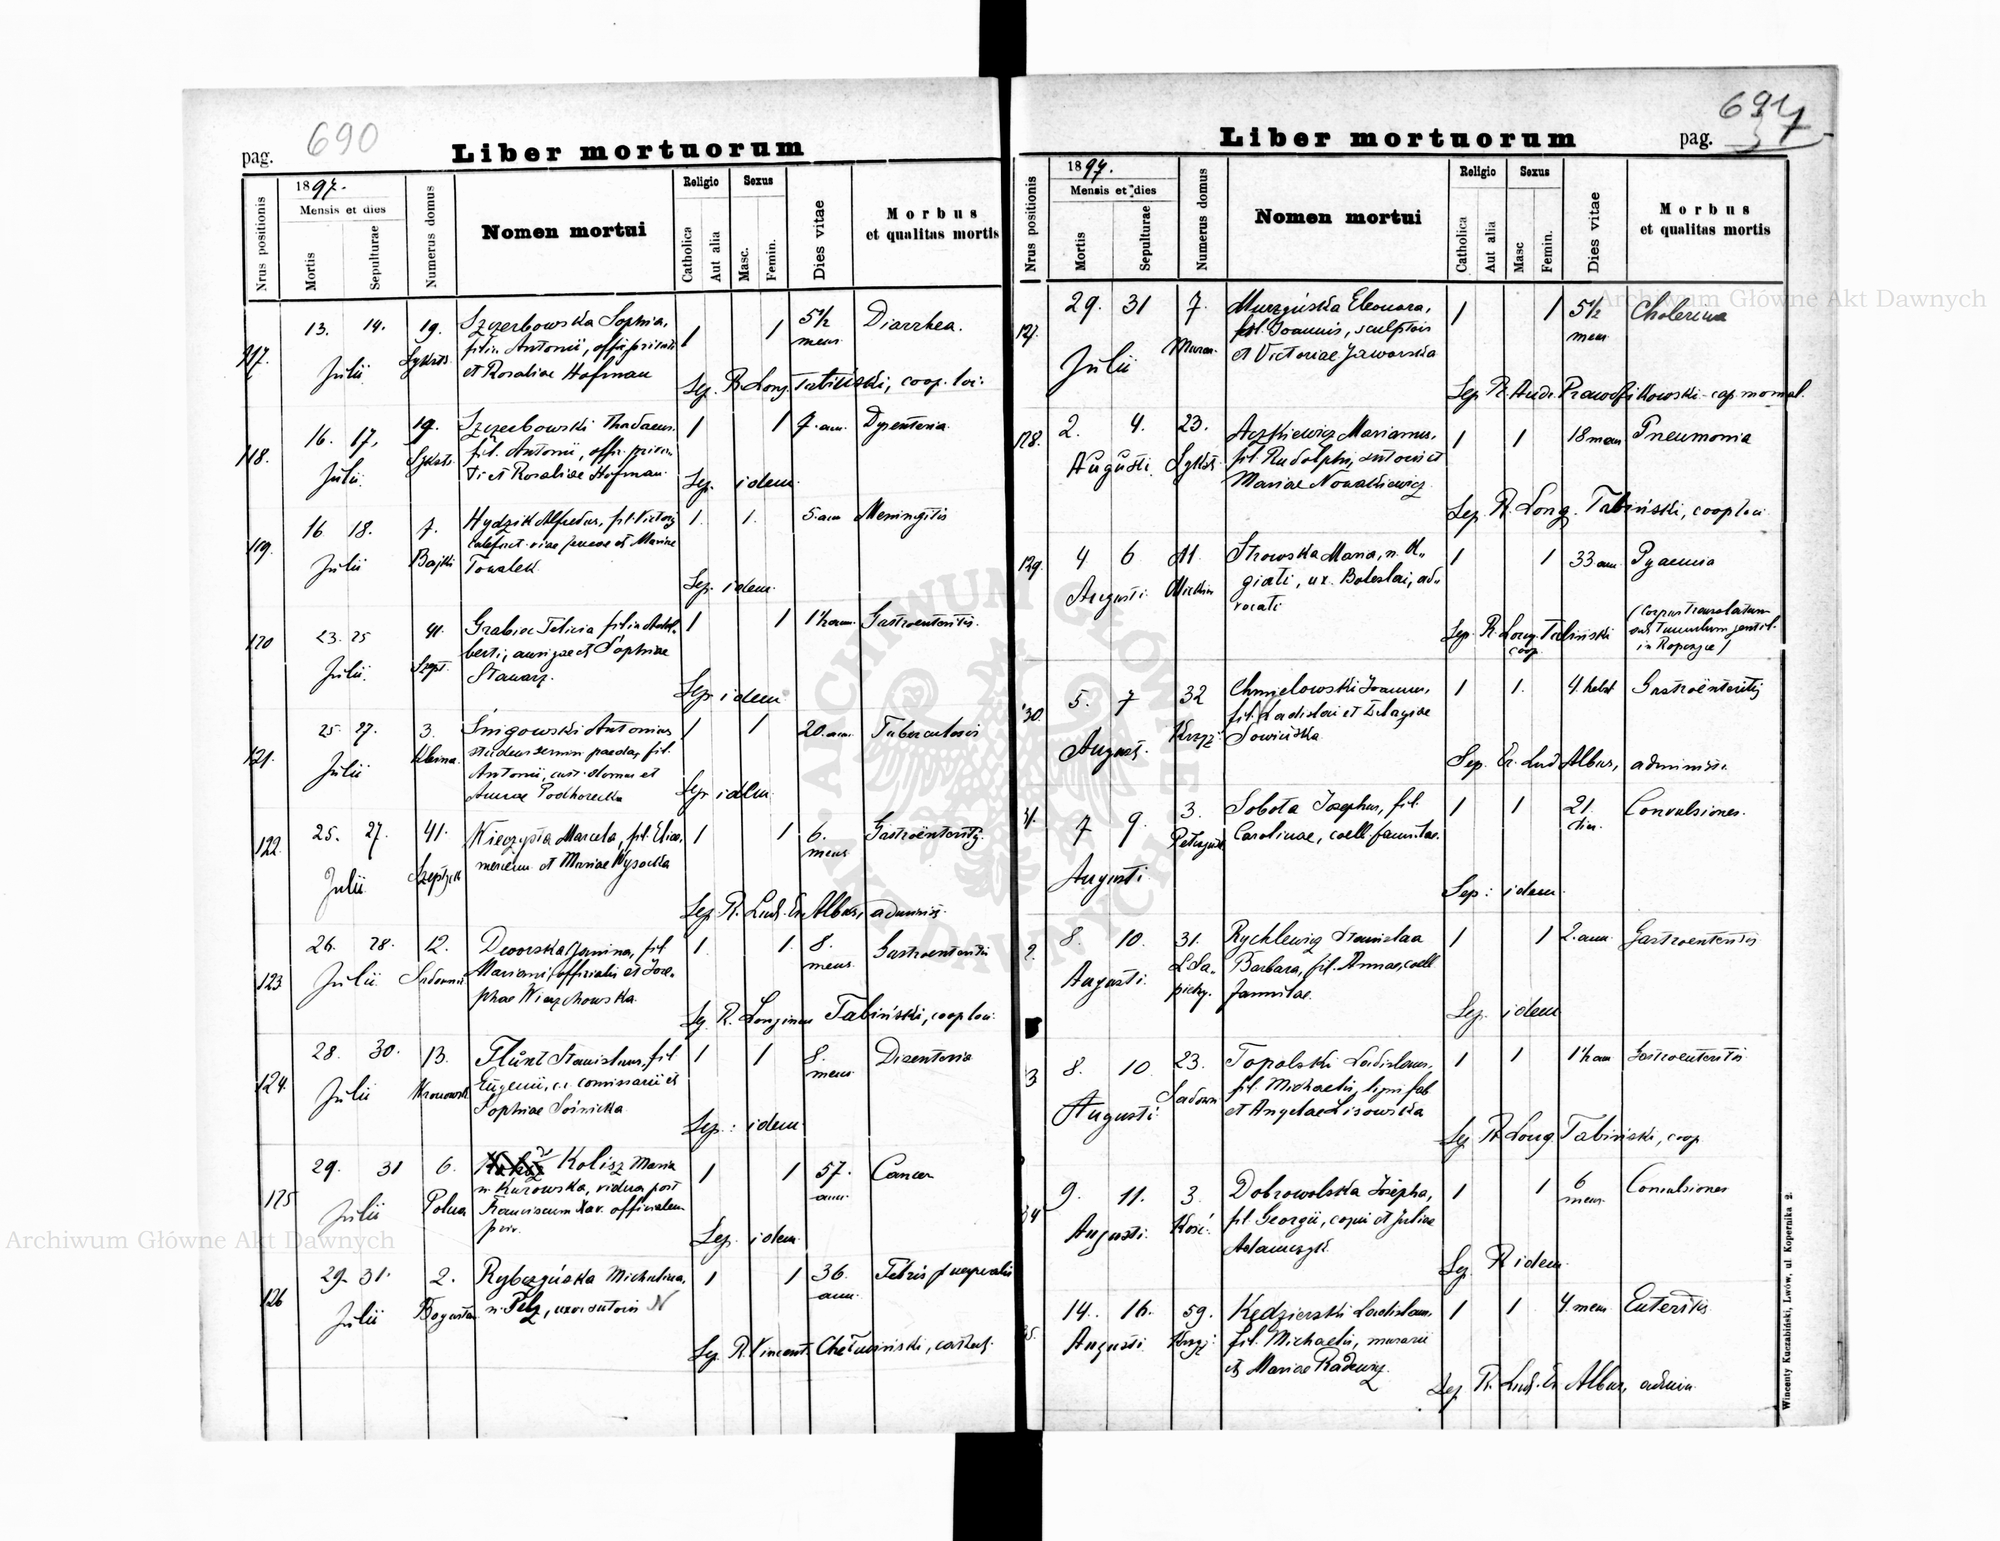 690
pag.
Liber mortuorum
Nrus positionis
1897.
Mensis et dies
Mortis
Sepulturae
Numerus domus
Nomen mortui
Religio
Catholica
Aut alia
Sexus
Masc.
Femin.
Dies vitae
Morbus
et qualitas mortis
13. 14. 19. Szczerbowska Sophia, 1 1 5½ Diarrhea.
117. Julii filia Antonii, offic. privati mens
et Rosaliae Hofman
Sep. R. Long. Tabiński, coop. loci
16. 17. 19. Szczerbowski Thadaeus 1 1 7. ann. Dysenteria
118. Julii fil. Antonii, offic. priva
ti et Rosaliae Hofman
Sep. idem
16 18. 7. Hydzik Alfredus, fil. Victorij 1. 1. 5. ann Meningitis
119. Julii Bajki et Mariae
Towalek
Sep. idem.
23. 25 41. Grabiec Felicia filia Adal- 1 1 1½ ann. Gastroenteritis
120 Julii Szept. berti, aurigae et Sophiae
Stawarz.
Sep. idem
25. 27. 3. Śnigowski Antonius 1 1 20. ann. Tuberculosis
121. Julii studens semin. paedag. fil.
Antonii, cust. domus et
Annae Podhorecka
Sep. idem
25. 27. 41. Wieczysta Marcela, fil. 1 1 6. Gastroënteritis
122. Julii Szeptyck et Mariae Wysocka mens
Sep. R. Lud. Er. Albus, administ.
26. 28. 12. Dworska Janina, fil. 1. 1. 8. Gastroenteritis
123 Julii Sadownic Mariani officialis et Jose- mens
phae Wierzchowska.
Sep. R. Longinus Tabiński, coop loci
28. 30. 13. Flunt Stanislaus, fil 1 1 8. Disenteria
124. Julii Kronowsk Eugenii, c. r. comissarii et mens
Sophiae Sośnicka
Sep.: idem
29. 31 6. Kolisz Maria 1 1 57. Cancer
125 Julii Polna n. Kurowska, vidua post ann.
Franciscum Xav. officialem
priv.
Sep. idem
29. 31. 2. Rybczyńska Michalina, 1 1 36. Febris puerperalis
126 Julii n. Pelz, uxor sutoris N ann.
Sep. R. Vincent. coop.
pag. 691
Liber mortuorum
Nrus positionis
1897.
Mensis et dies
Mortis
Sepulturae
Numerus domus
Nomen mortui
Religio
Catholica
Aut alia
Sexus
Masc
Femin.
Dies vitae
Morbus
et qualitas mortis
29. 31 7. Murzyńska Eleonora, 1 1 5½ Cholerina
127. Julii Murar. fil. Joannis, sculptoris mens
et Victoriae Jaworska
Sep. R. Andr. cap. monial.
2. 4. 23. Aczkiewicz Marianus, 1 1 18 mens Pneumonia
128. Augusti Sykst. fil. Rudolphi, sutoris et
Mariae Nowakiewicz
Sep. R. Long. Tabiński, coop loci
4 6 11 Strowska Maria, n. 1 1 33. ann Pyaemia
129. Augusti giati, ux. Boleslai, ad-
vocati
Sep. R. Long. Tabiński coop. (corpus translatum
ad Tumulum gentil.
in Kopeczyce)
5. 7 32 Chmielowski Joannes, 1 1. 4. hebd Gastroënteritis
130. Augusti Krzyż. fil. Ladislai et Pelagiae
Sowińska
Sep. Er. Lud Albus, administr.
7 9. 3. Sobota Josephus, fil. 1 1 21. Convulsiones.
31. Augusti Carolinae, caelib. famulae. dier.
Sep: idem
8. 10. 31. Rychlewicz Stanislaa 1 1 2. ann Gastroenteritis
2. Augusti L. Sa- Barbara, fil. Annae, caelib
piehy. famulae.
Sep. idem
8. 10. 23. Topolski Ladislaus, 1 1 1½ ann Gastroenteritis
3 Augusti Sadown fil. Michaelis, ligni fab
et Angelae Lisowska
Sep. R. Long. Tabiński, coop
9. 11. 3. Dobrowolska Josepha, 1 1 6 Convulsiones
34 Augusti Kość. fil. Georgii, et Juliae mens.
Adamczyk.
Sep. R. idem
14. 16. 59. Kędzierski Ladislaus, 1 1 4. mens Enteritis
35. Augusti Krzyż. fil. Michaelis, murarii
et Mariae Radewicz
Sep. R. Lud. Er Albus, admin.
Wincenty Kuczabiński, Lwów, ul Kopernika 2.
Archiwum Główne Akt Dawnych
Archiwum Główne Akt Dawnych
ARCHIWUM GŁÓWNE AKT DAWNYCH